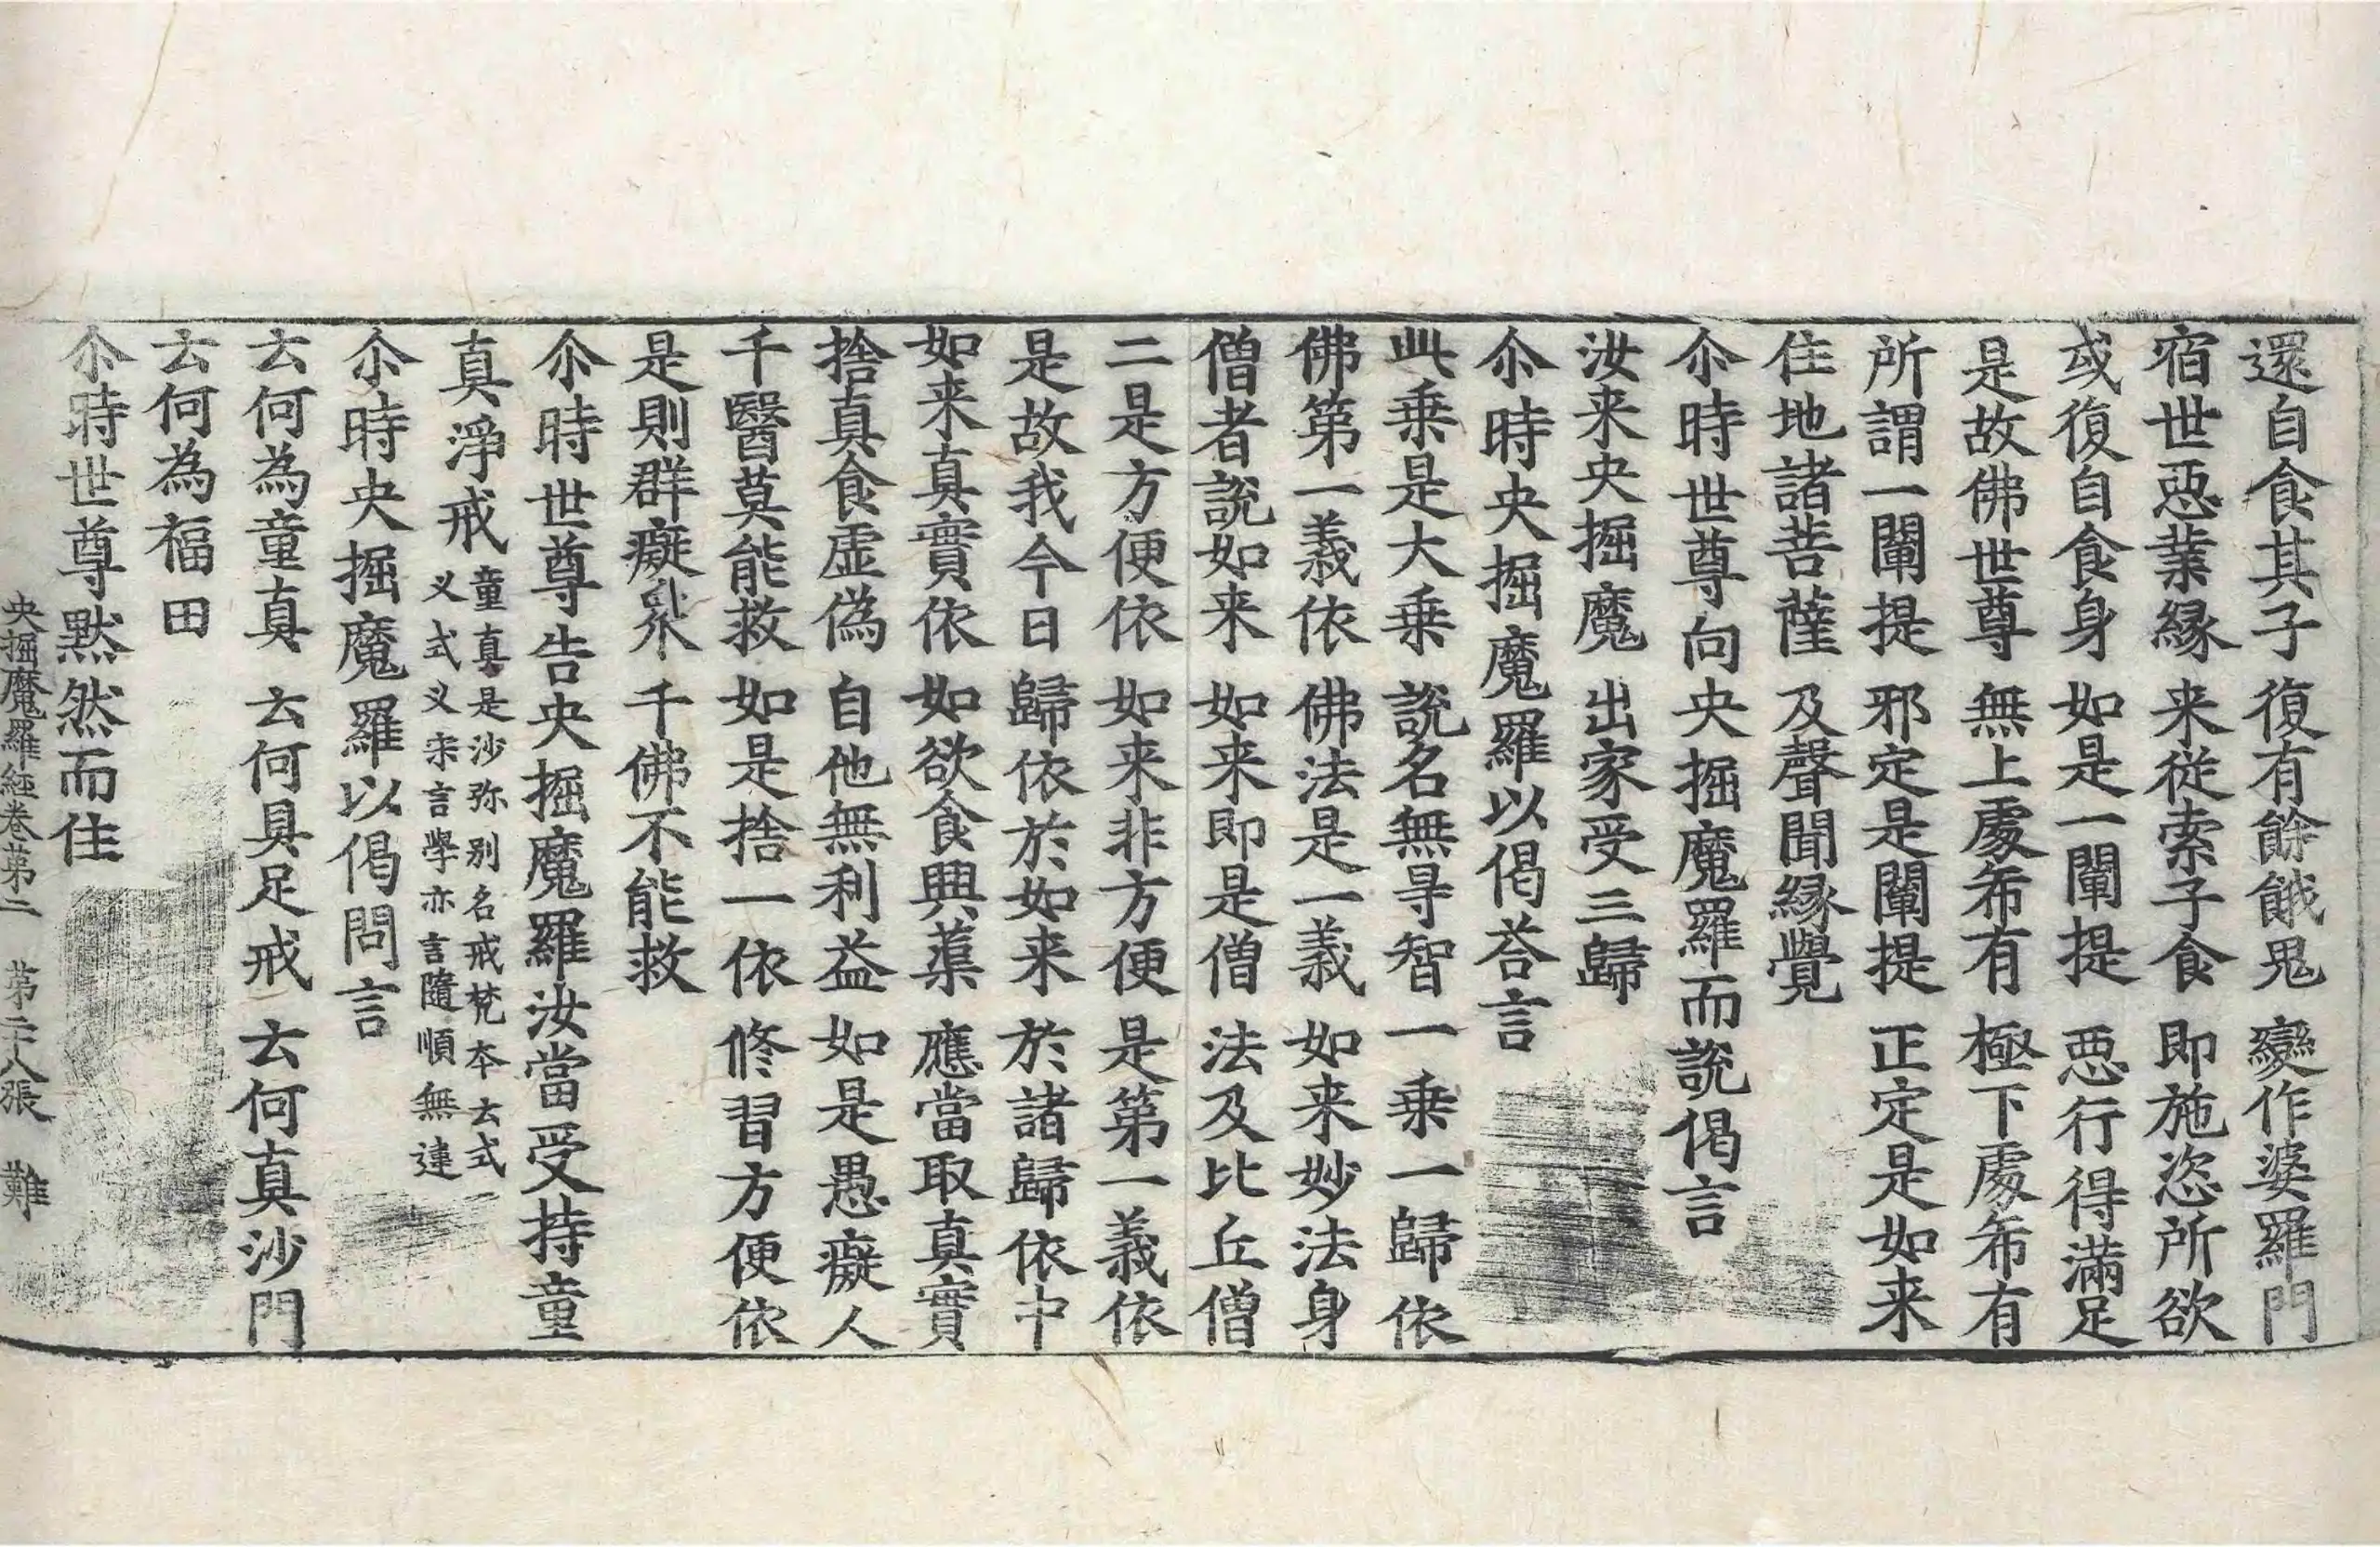 還自食其子　復有餘餓鬼　變作婆羅門
宿世惡業緣　来從索子食　即施恣所欲
或復自食身　如是一闡提　惡行得滿足
是故佛世尊　無上處希有　極下處希有
所謂一闡提　邪定是闡提　正定是如来
住地諸菩薩　及聲聞緣覺
尒時世尊向央掘魔羅而說偈言
汝来央掘魔　出家受三歸
尒時央掘魔羅以偈荅言
此乗是大乗　說名無㝵智　一乗一歸依
佛第一義依　佛法是一義　如来妙法身
僧者說如来　如来即是僧　法及比丘僧
二是方便依　如来非方便　是第一義依
是故我今日　歸依於如来　於諸歸依中
如来真實依　如欲食興蕖　應當取真實
捨真食虛偽　自他無利益　如是愚癡人
千醫莫能救　如是捨一依　修習方便依
是則群癡衆　千佛不能救
尒時世尊告央掘魔羅汝當受持童
真淨戒童真是沙弥別名戒梵本云式
叉式叉宋言學亦言隨順無違
尒時央掘魔羅以偈問言
云何為童真　云何具足戒　云何真沙門
云何為福田
尒時世尊黙然而住
央掘魔羅經卷第二　第二十八張　難